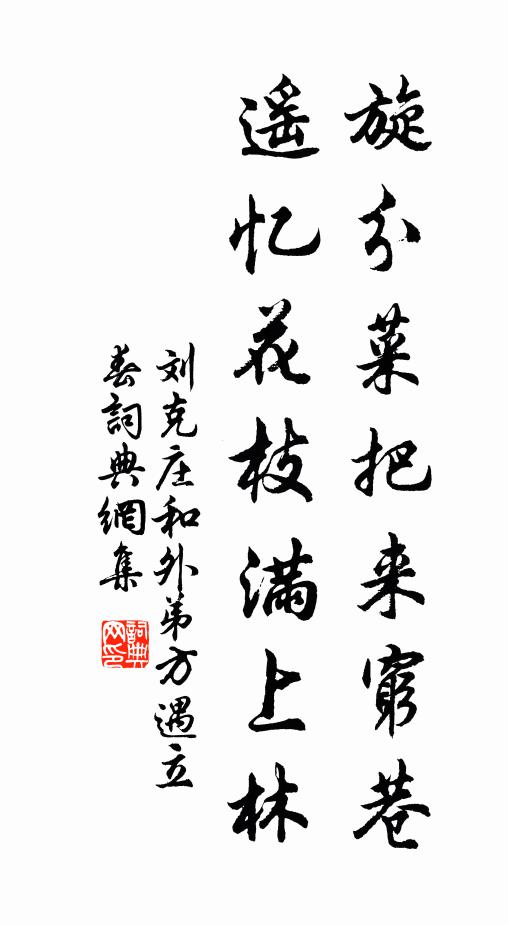 旋分菜把来窮巷
遥忆花枝滿上林
刘克庄和外弟方遇立
春詞典網集
詞典网印